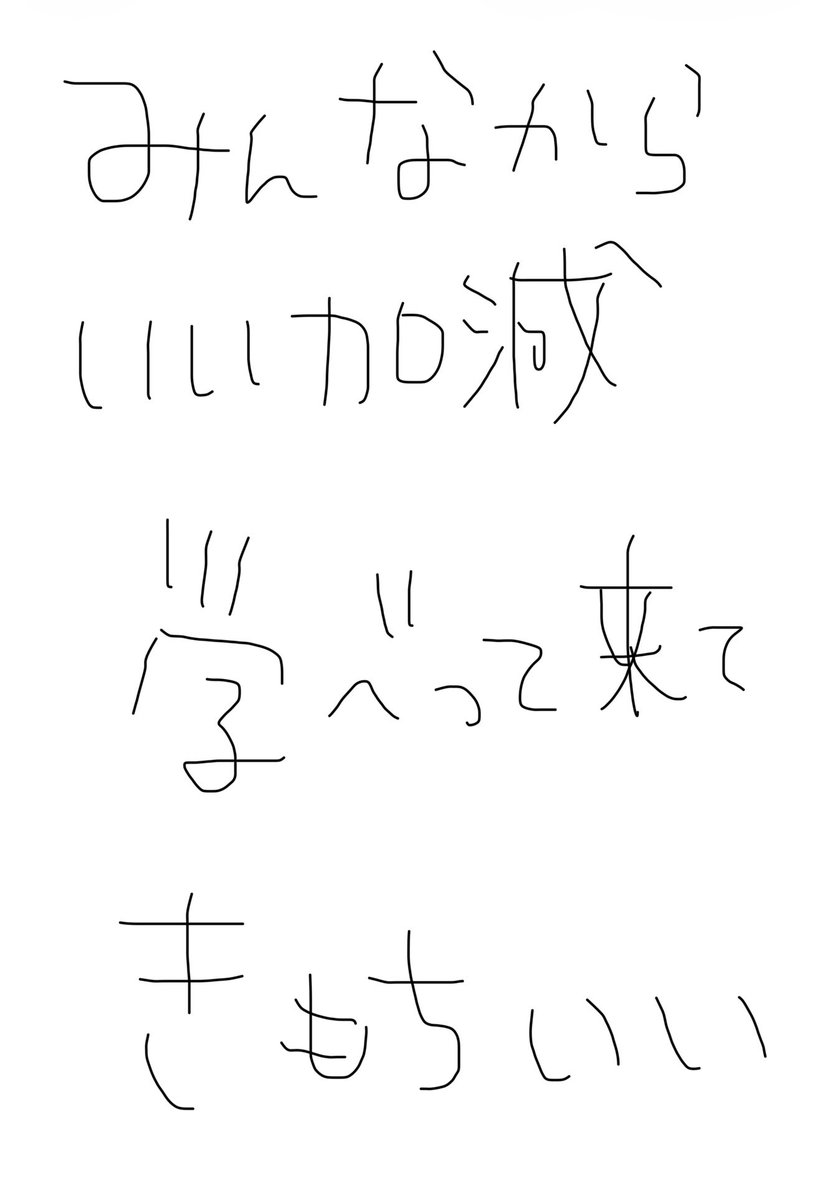 みんなから
いい加減
学べって来て
きもちいい